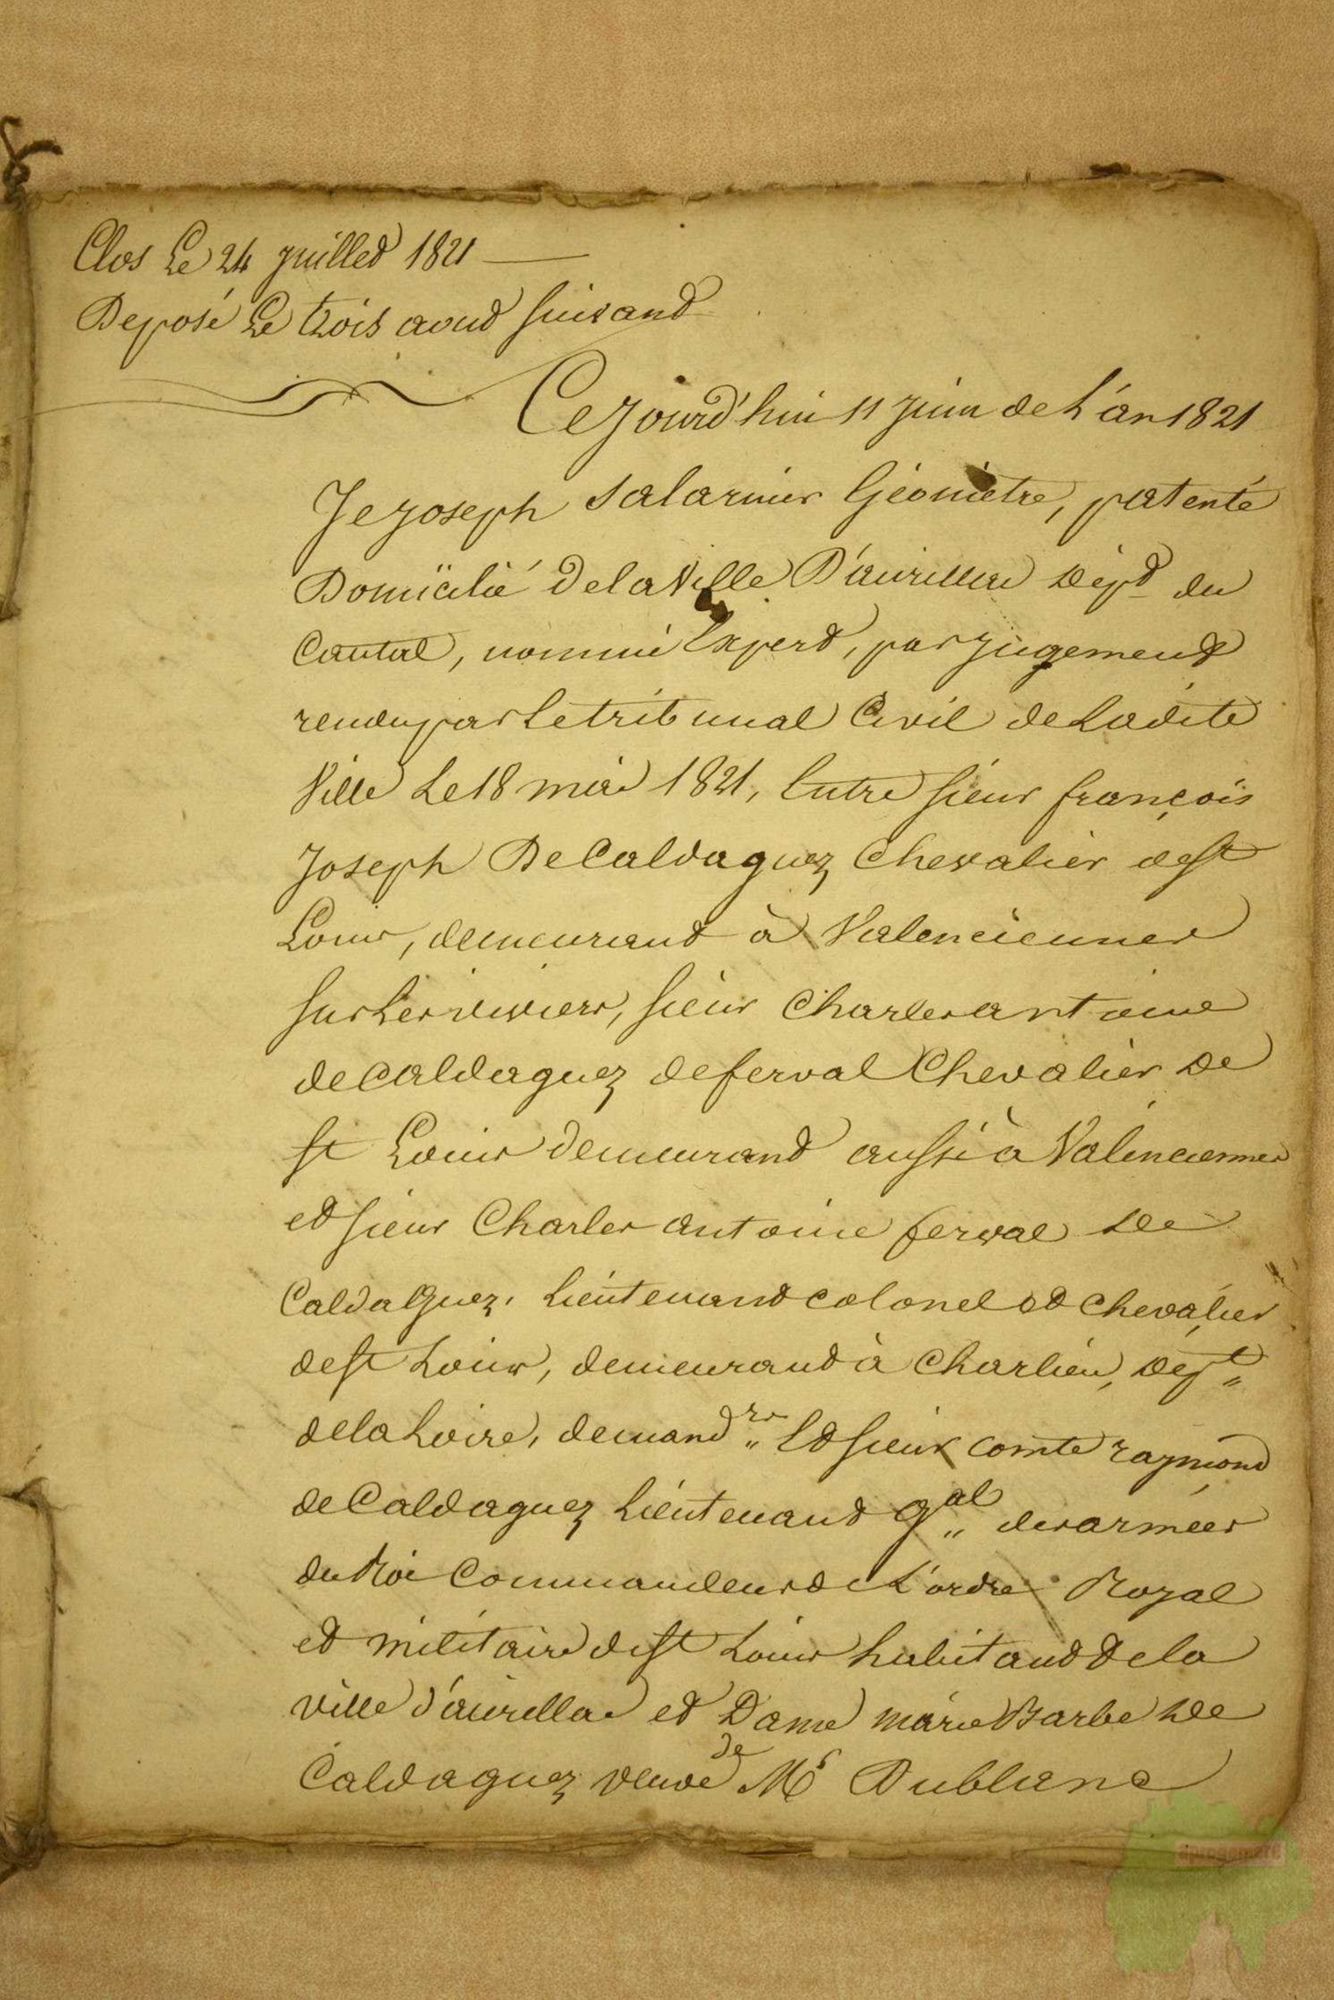 Clos Le 24 juillet 1821
Deposé Le trois aout suivant
Cejourd'hui 11 juin de L'an 1821
Je joseph Salarnier Géométre, patenté
Domicilié de la Ville D'aurillac Dépt du
Cantal, nommé Expert, par jugement
rendu par Le tribunal Civil de Ladite
Ville Le 18 mai 1821, Entre sieur françois
Joseph De Caldaguez Chevalier de st
Louis, demeurant à Valenciennes
sieur Charles antoine
de Caldaguez de ferval Chevalier De
st Louis demeurant aussi à Valenciennes
et sieur Charles antoine ferval De
Caldaguez, Lieutenant colonel et chevalier
de st Louis, demeurant à Charlieu, Dept
de la Loire, demandrs Et sieur comte raymond
de Caldaguez Lieutenant gal des armées
du Roi Commandeur de L'ordre Royal
et militaire de st Louis habitant de la
ville d'aurillac et Dame marie Barbe De
Caldaguez veuve de Mr Dublanc